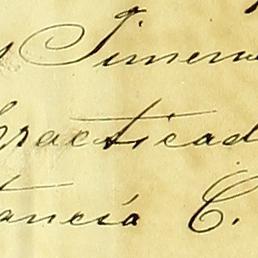 s Jimen
practicad
tancia C.